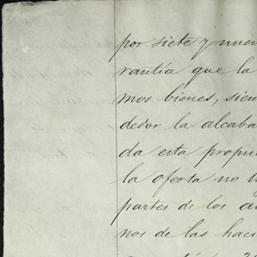 por siete y nueve
rantía que la
mos bienes, sien
dedor la alcaba
da esta propie
la oferta no
partes de los a
nos de las haci